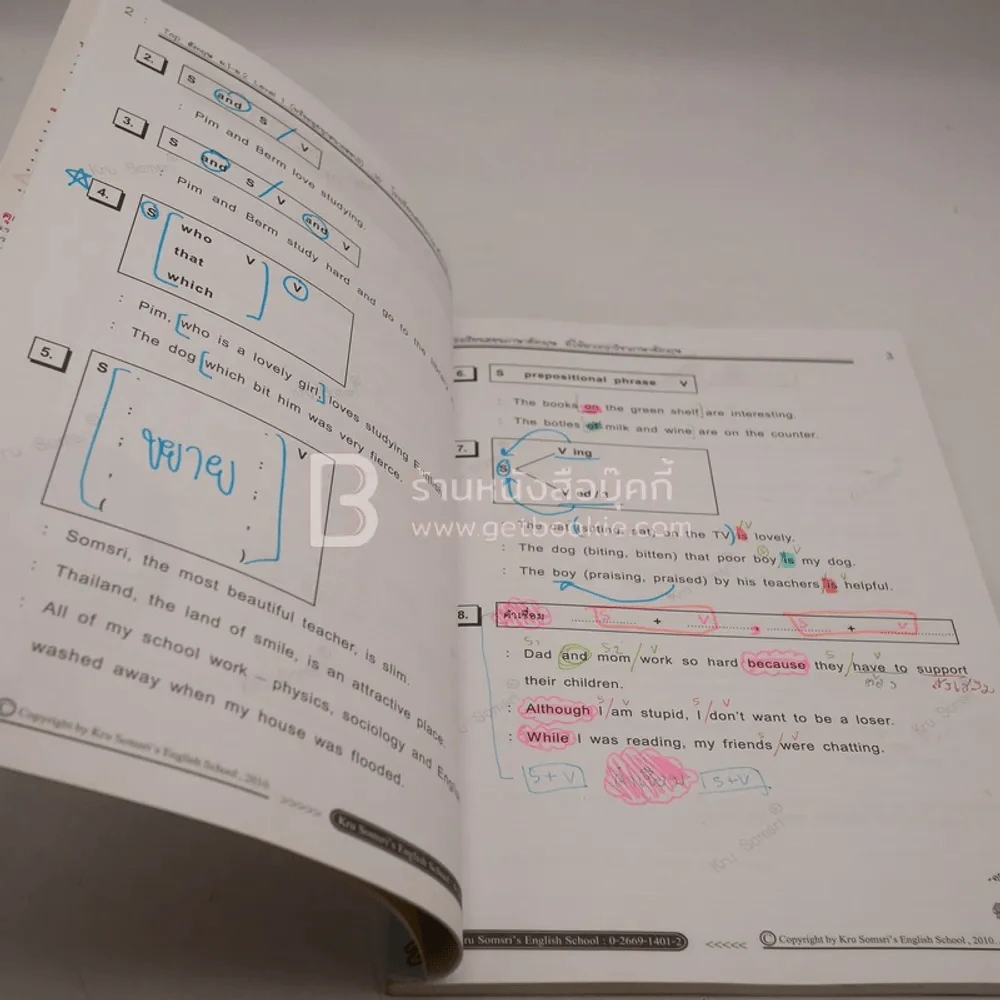 2
Top อังกฤษ ม.1-ม.2 Level 1
2.
S and S / V
: Pim and Berm love studying.
3.
S and S / V and V
: Pim and Berm study hard and go to the
4.
S who V V
that
which
: Pim, [who is a lovely girl,] loves studying English
: The dog [which bit him was very fierce.
5.
S ขยาย V
: Somsri, the most beautiful teacher, is slim.
: Thailand, the land of smile, is an attractive place.
: All of my school work – physics, sociology and Engl
washed away when my house was flooded.
© Copyright by Kru Somsri's English School, 2010.
>>>>>
Kru Somsri's English School
3
6.
S prepositional phrase V
: The books on the green shelf are interesting.
: The botles of milk and wine are on the counter.
7.
S V ing
V ed / 3
: The cat (sitting, sat) on the TV) is lovely.
: The dog (biting, bitten) that poor boy is my dog.
: The boy (praising, praised) by his teachers is helpful.
8.
คำเชื่อม S + V , S + V
S1 S2 V S V
: Dad and mom / work so hard because they / have to support
their children.
S V S V
: Although I / am stupid, I / don't want to be a loser.
S V
: While I was reading, my friends / were chatting.
S+V คำเชื่อม S+V
ru Somsri's English School : 0-2669-1401-2
<<<<<
© Copyright by Kru Somsri's English School, 2010.
Kru Somsri
B ร้านหนังสือบุ๊คกี้
www.getbookie.com